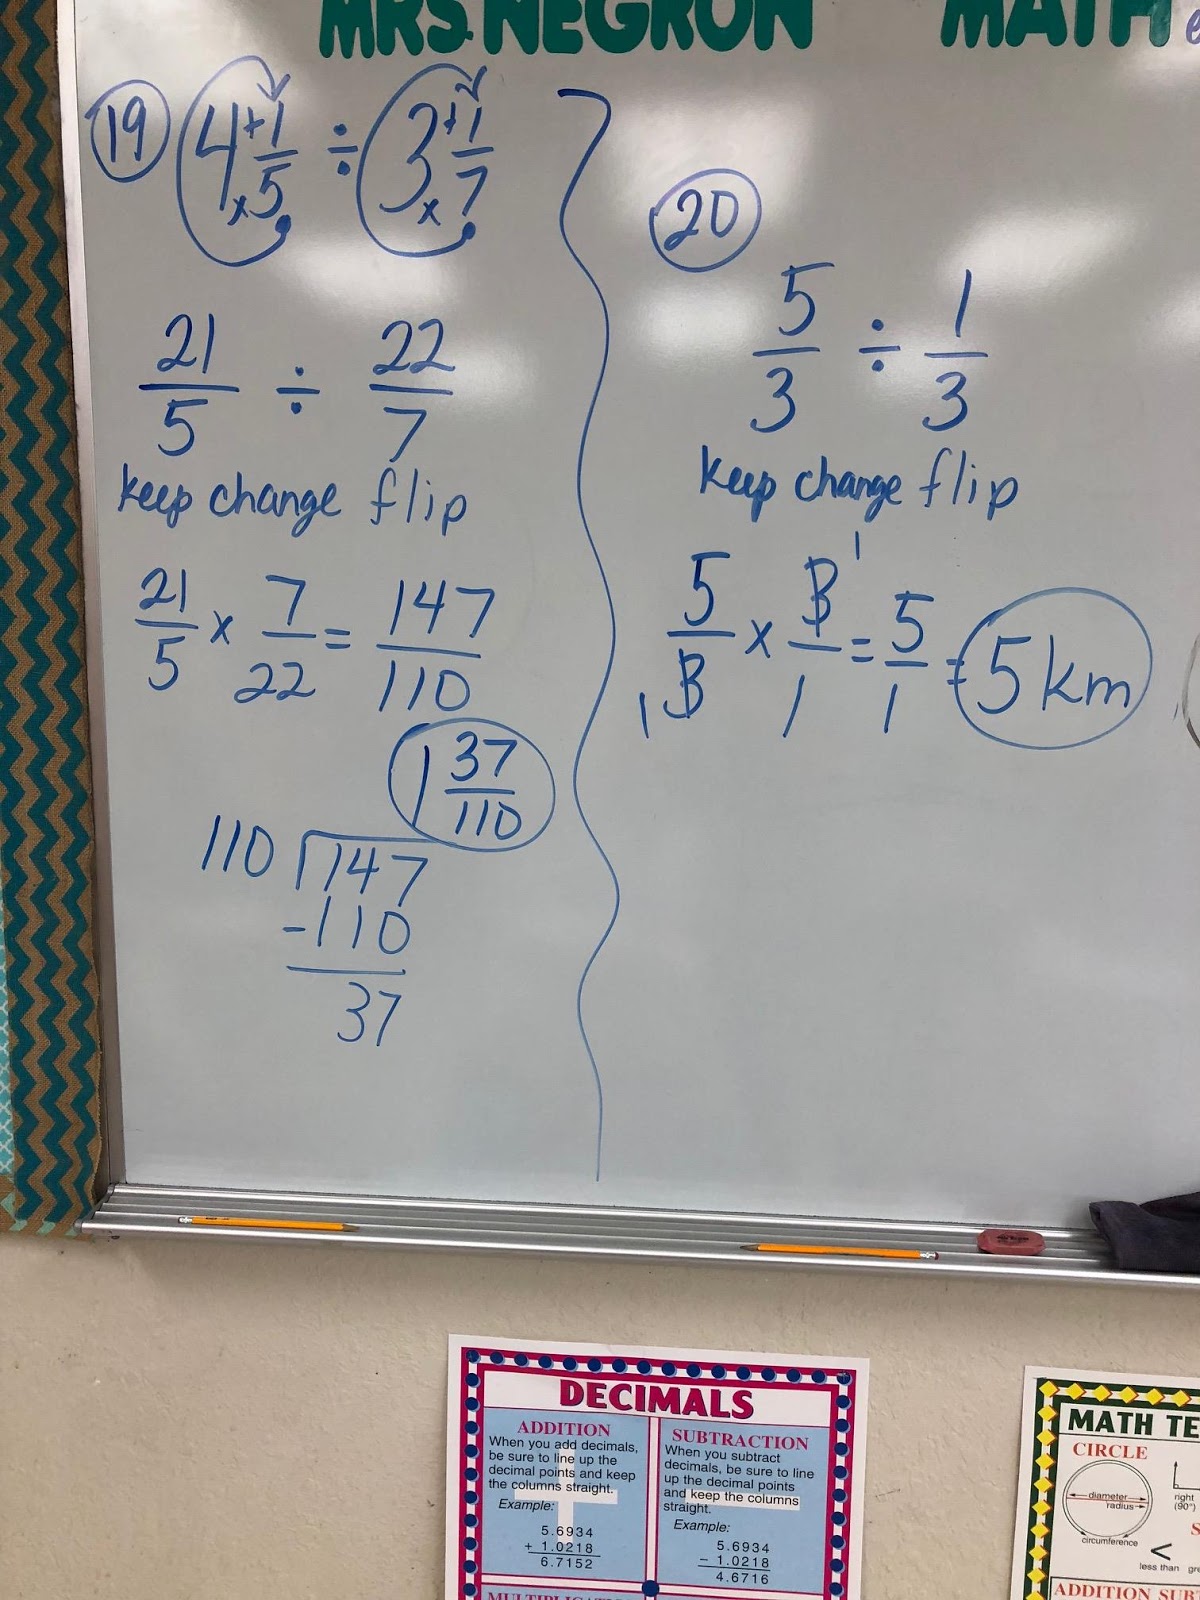 MRS. NEGRON MATH
19 4 + 1/5 ÷ 3 + 1/7
x x
21/5 ÷ 22/7
keep change flip
21/5 x 7/22 = 147/110
1 37/110
110 147
-110
37
20
5/3 ÷ 1/3
keep change flip
5/3 x 3/1 = 5/1 = 5 km
1 1
DECIMALS
ADDITION
When you add decimals,
be sure to line up the
decimal points and keep
the columns straight.
Example:
5.6934
+ 1.0218
6.7152
SUBTRACTION
When you subtract
decimals, be sure to line
up the decimal points
and keep the columns
straight.
Example:
5.6934
− 1.0218
4.6716
MATH TE
CIRCLE
diameter
radius
circumference
right
(90°)
<
less than
ADDITION